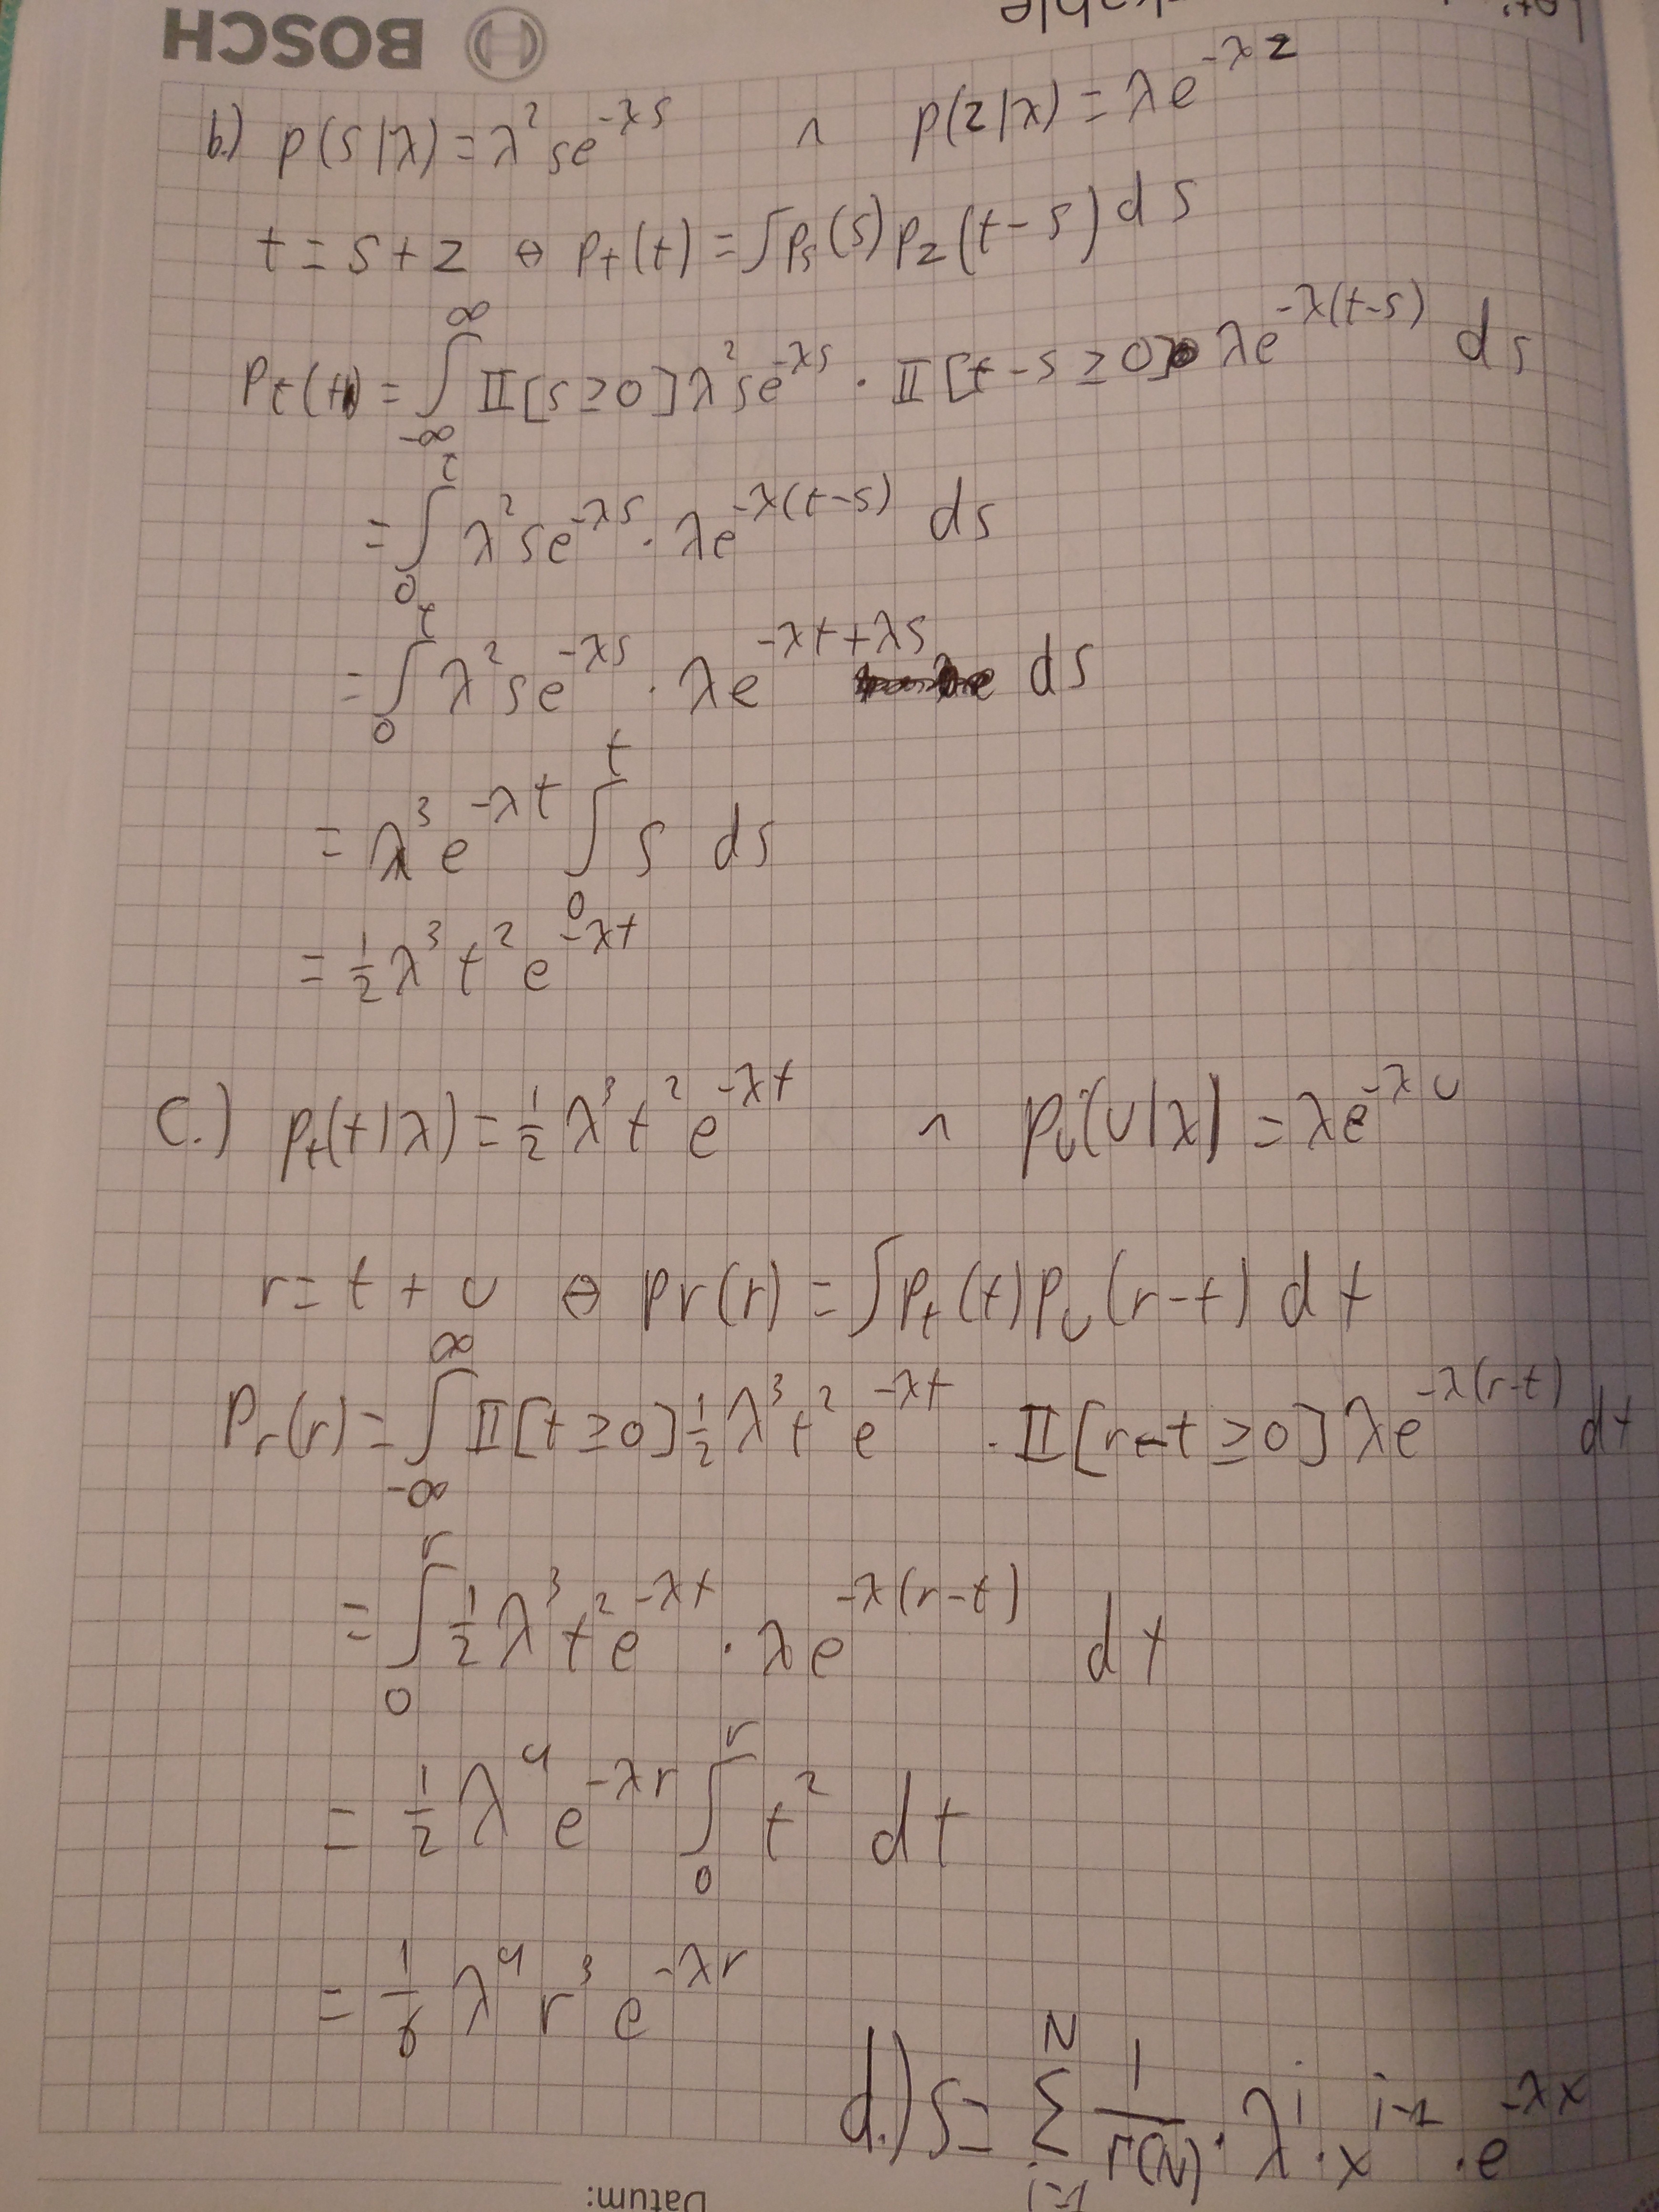 BOSCH
b.) p(s|λ) = λ² s e^{-λs} ∧ p(z|λ) = λe^{-λz}
t = s + z ⇔ p_t(t) = ∫ p_s(s) p_z(t-s) ds
p_t(t) = ∫_{-∞}^{∞} 𝕀[s ≥ 0] λ² s e^{-λs} · 𝕀[t-s ≥ 0] λe^{-λ(t-s)} ds
= ∫_0^t λ² s e^{-λs} · λe^{-λ(t-s)} ds
= ∫_0^t λ² s e^{-λs} · λe^{-λt+λs} ds
= λ³ e^{-λt} ∫_0^t s ds
= 1/2 λ³ t² e^{-λt}
c.) p_t(t|λ) = 1/2 λ³ t² e^{-λt} ∧ p_u(u|λ) = λe^{-λu}
r = t + u ⇔ p_r(r) = ∫ p_t(t) p_u(r-t) dt
p_r(r) = ∫_{-∞}^{∞} 𝕀[t ≥ 0] 1/2 λ³ t² e^{-λt} · 𝕀[r-t ≥ 0] λe^{-λ(r-t)} dt
= ∫_0^r 1/2 λ³ t² e^{-λt} · λe^{-λ(r-t)} dt
= 1/2 λ⁴ e^{-λr} ∫_0^r t² dt
= 1/6 λ⁴ r³ e^{-λr}
d.) s = Σ_{i=1}^N 1/Γ(N) · λ^i · x^{i-1} · e^{-λx}
Datum: